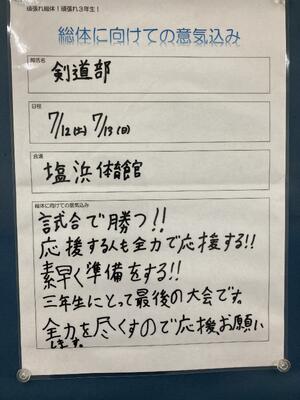 頑張れ総体！頑張れ3年生！
総体に向けての意気込み
剣道部
日程
7/12(土) 7/13(日)
会場
塩浜体育館
総体に向けての意気込み
試合で勝つ!!
応援する人も全力で応援する!!
素早く準備をする!!
三年生にとって最後の大会です。
全力を尽くすので応援お願い
します。